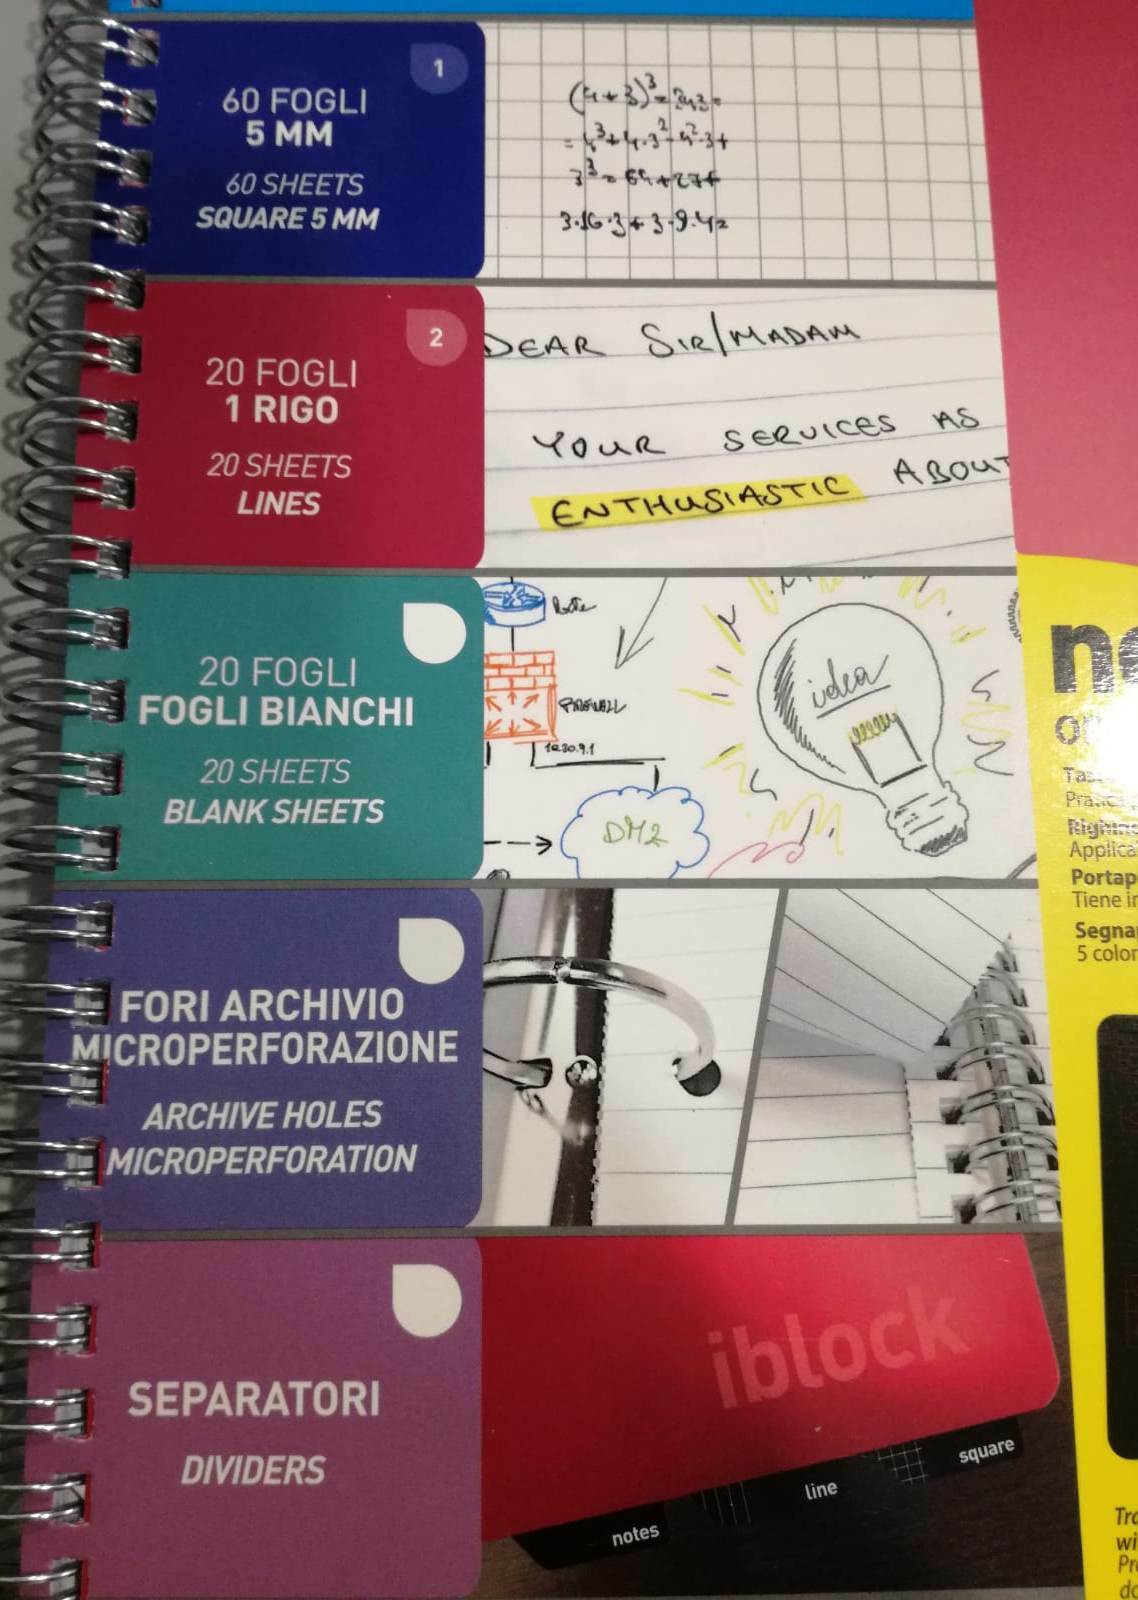 1
60 FOGLI
5 MM
60 SHEETS
SQUARE 5 MM
(4+3)³=
3³=64+27+
3·16·3+3·9·4=
2
20 FOGLI
1 RIGO
20 SHEETS
LINES
DEAR SIR/MADAM
YOUR SERVICES AS
ENTHUSIASTIC ABOUT
20 FOGLI
FOGLI BIANCHI
20 SHEETS
BLANK SHEETS
FIREWALL
idea
FORI ARCHIVIO
MICROPERFORAZIONE
ARCHIVE HOLES
MICROPERFORATION
SEPARATORI
DIVIDERS
iblock
notes
line
square
Applica
Portap
Tiene in
Segna
5 color